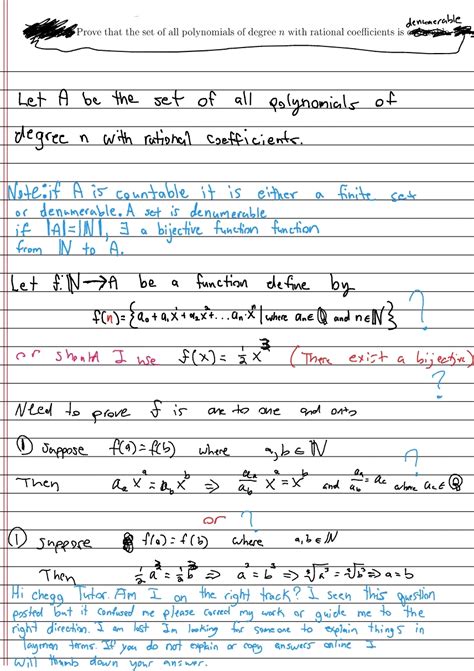 denumerable
Prove that the set of all polynomials of degree n with rational coefficients is
Let A be the set of all polynomials of
degree n with rational coefficients.
Note: if A is countable it is either a finite set
or denumerable. A set is denumerable
if |A|=|ℕ|, ∃ a bijective function function
from ℕ to A.
Let f: ℕ → A be a function define by
f(n) = {a₀ + a₁x¹ + a₂x² + ... aₙ·xⁿ | where aₙ ∈ ℚ and n ∈ ℕ} ?
or should I use f(x) = 1/2 x³ (There exist a bijective)
?
Need to prove f is one to one and onto
① Suppose f(a) = f(b) where a, b ∈ ℕ ?
Then aₐxᵃ = a_b xᵇ ⇒ xᵃ = xᵇ and = a_c where a_c ∈ ℚ
or ?
① Suppose f(a) = f(b) where a, b ∈ ℕ
Then 1/2 a³ = 1/2 b³ ⇒ a³ = b³ ⇒ ³√a³ = ³√b³ ⇒ a = b
Hi chegg Tutor. Am I on the right track? I seen this question
posted but it confused me please correct my work or guide me to the
right direction. I am lost Im looking for someone to explain things in
laymen terms. If you do not explain or copy answers online I
will thumb down your answer.